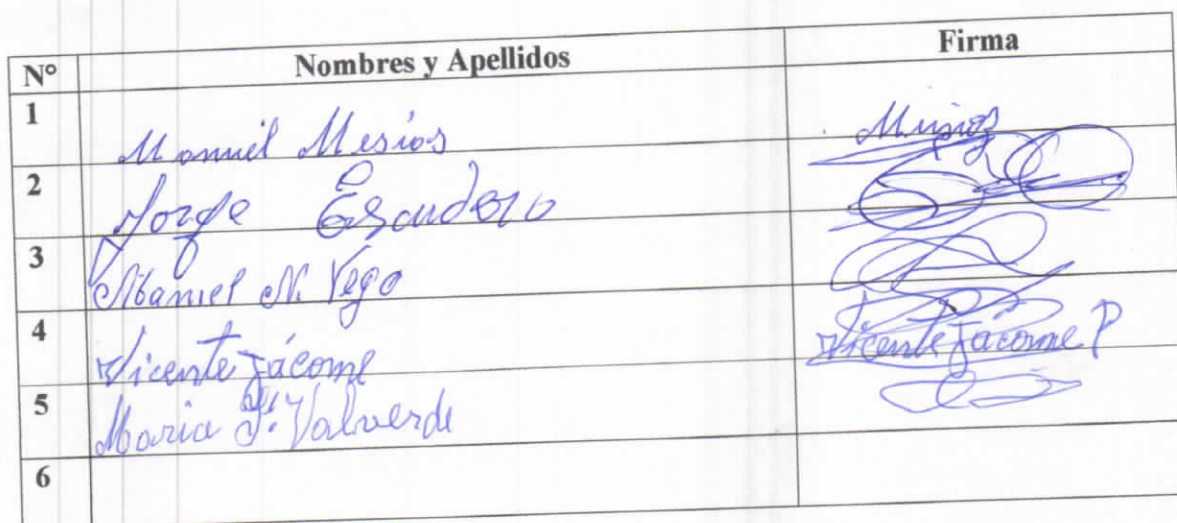 N° Nombres y Apellidos Firma
1 Manuel Mesías
2 Jorge Escudero
3 Manuel N. Vega
4 Vicente Jácome Vicente Jácome P
5 Maria Valverde
6